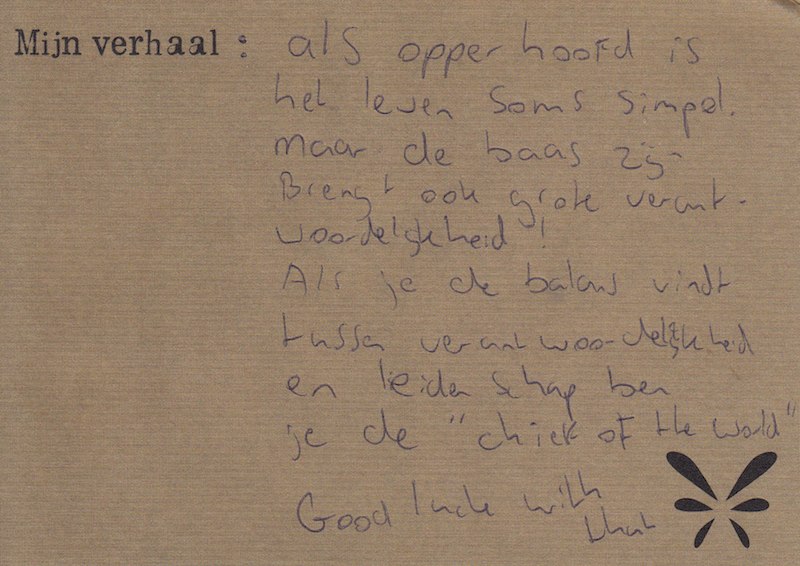 Mijn verhaal : als opperhoofd is
het leven soms simpel.
maar de baas zijn
Brengt ook grote verant-
woordelijkheid!
Als je de balans vindt
tussen verantwoordelijkheid
en leiderschap ben
je de "chief of the world"
Good luck with
that